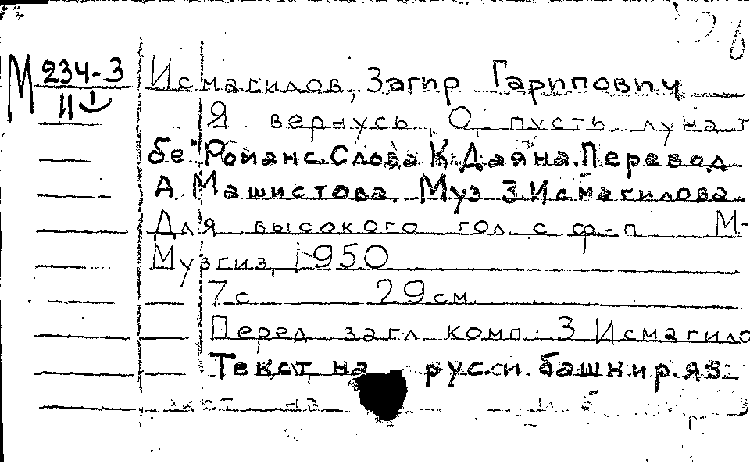 М 234-3 Исмагилов, Загир Гарипович
II Я вернусь. О, пусть луна т
бе" Романс. Слова К. Даяна. Перевод
А. Машистова. Муз. З. Исмагилова.
Для высокого гол. с ф-п М-
Музгиз, 1950
7 с. 29 см.
Перед загл. комп.: З. Исмагило
Текст на русск. башкир. яз.